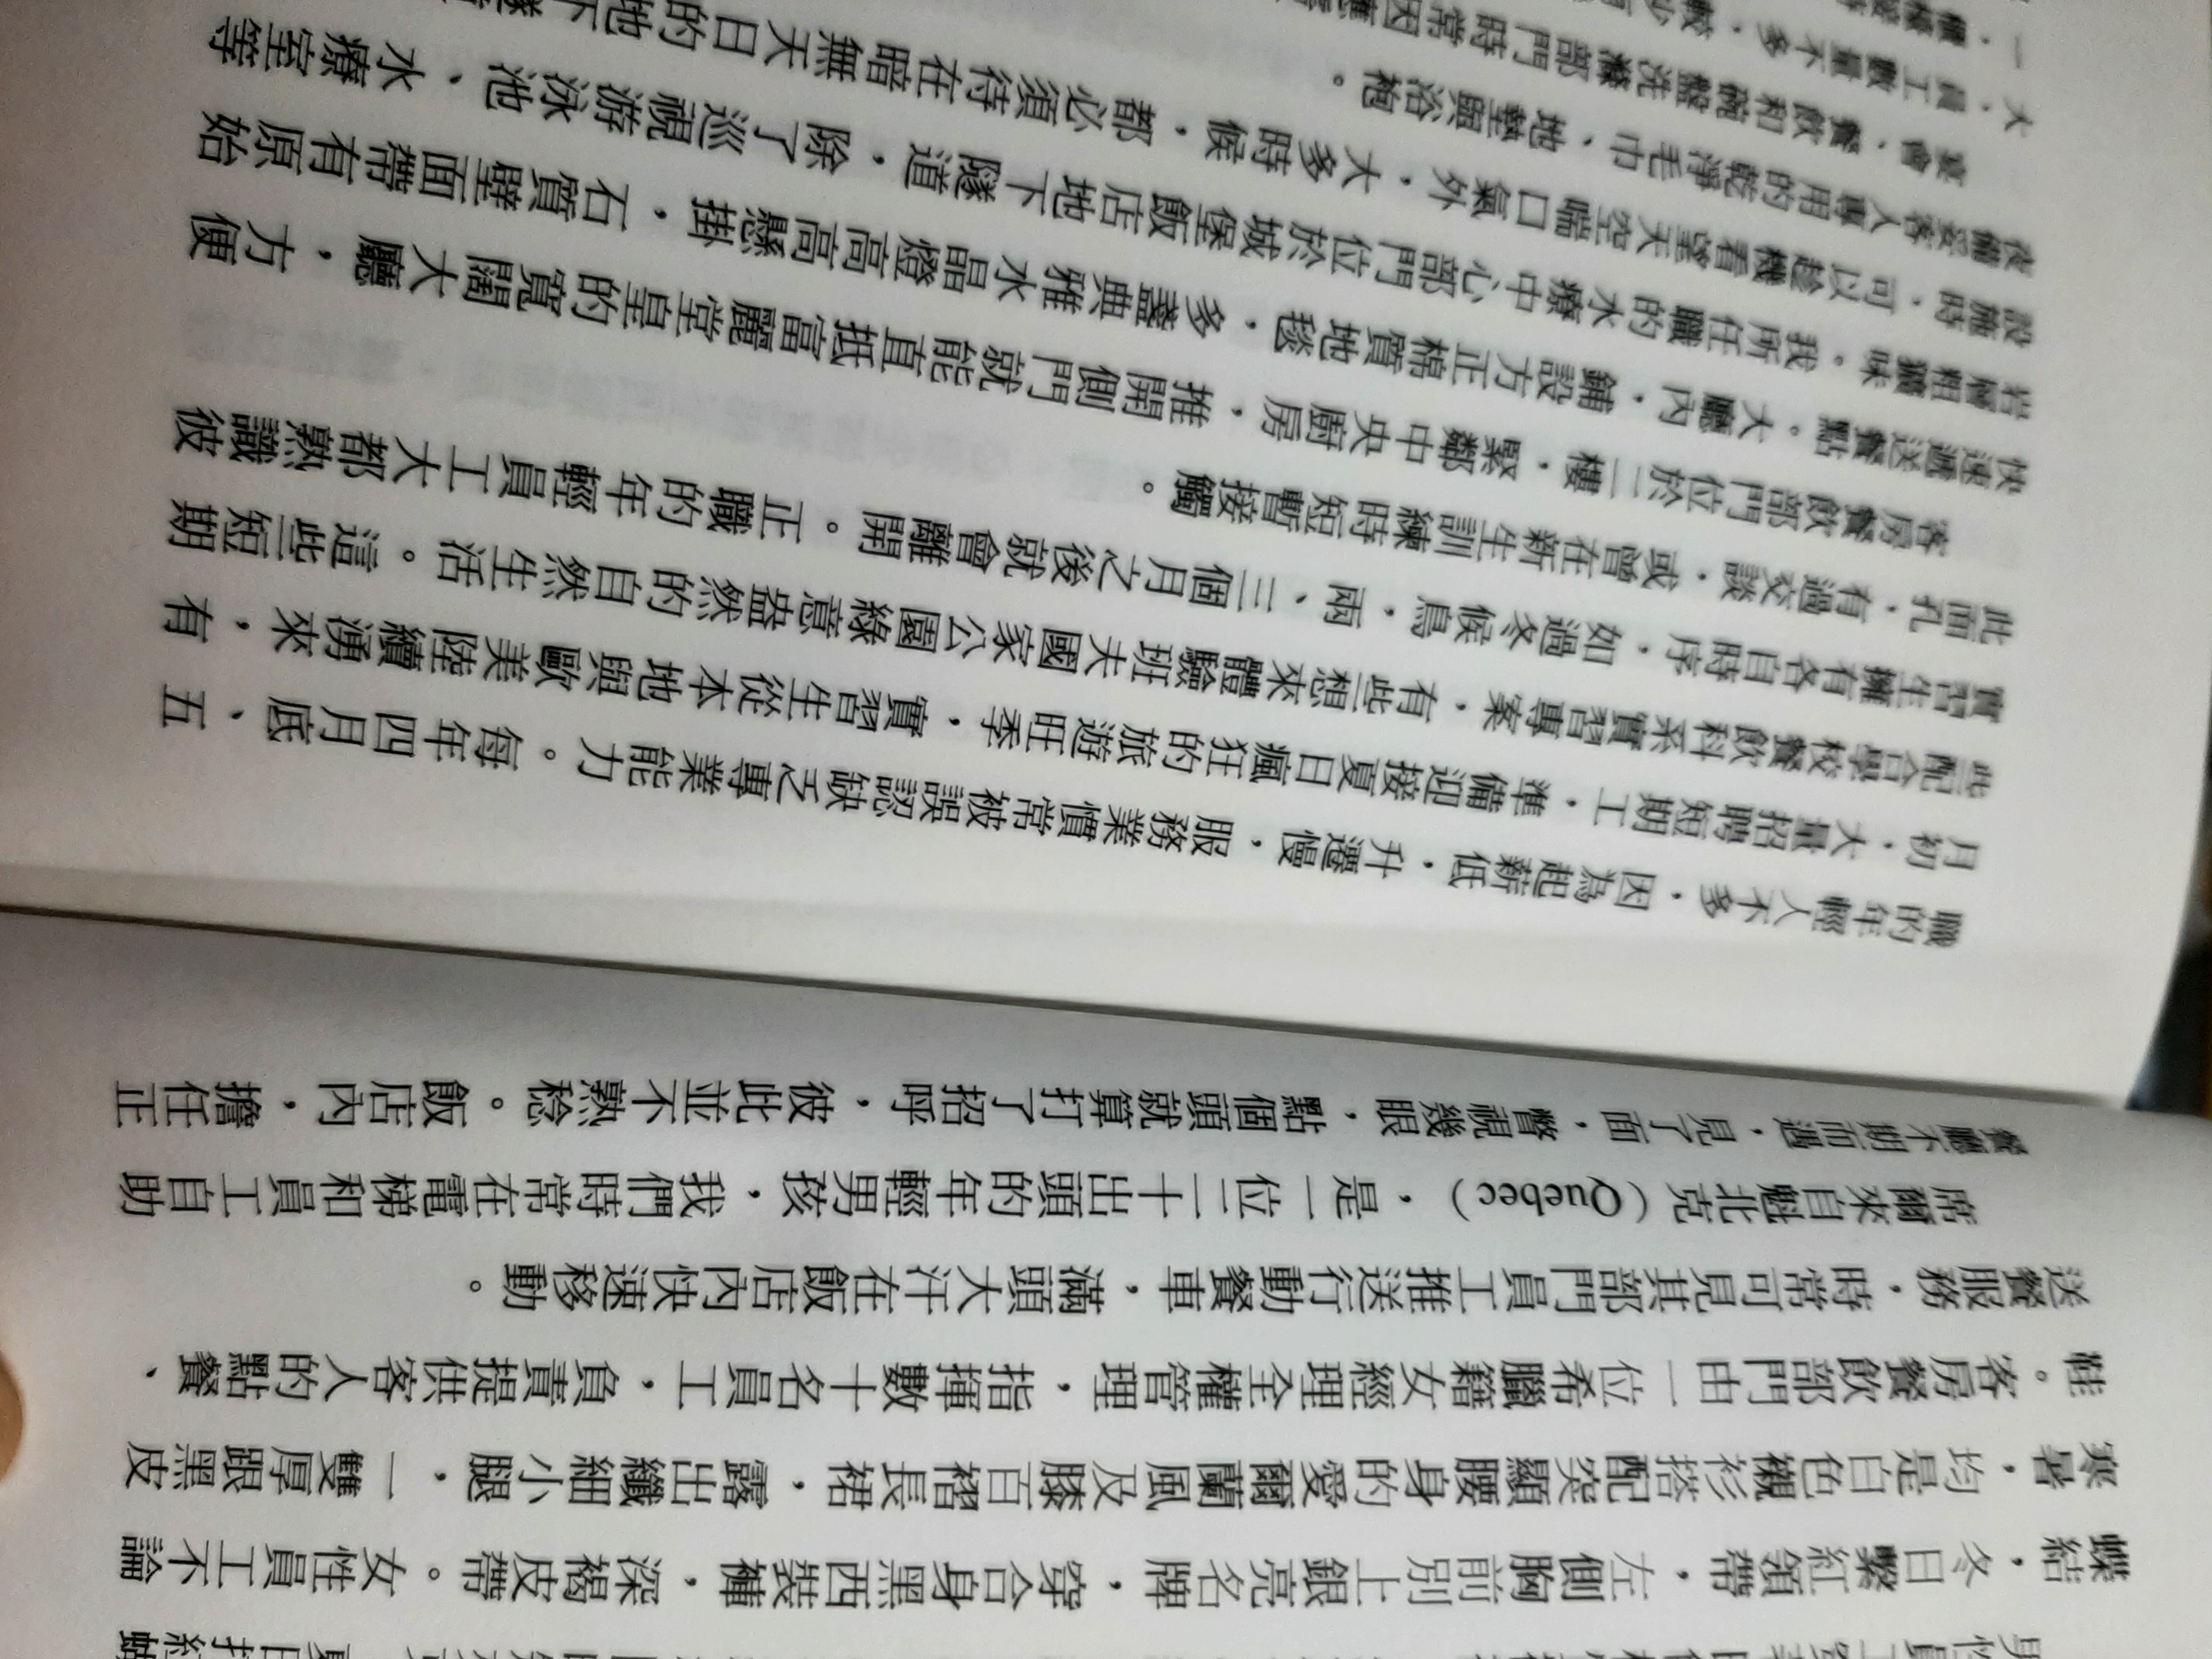 男性員工
蝶結，冬日繫紅領帶，左側胸前別上銀亮名牌，穿合身黑西裝褲，深褐皮帶。女性員工不論
寒暑，均是白色襯衫搭配突顯腰身的愛爾蘭風及膝百褶長裙，露出纖細小腿，一雙厚跟黑皮
鞋。客房餐飲部門由一位希臘籍女經理全權管理，指揮數十名員工，負責提供客人的點餐、
送餐服務，時常可見其部門員工推送行動餐車，滿頭大汗在飯店內快速移動。
席爾來自魁北克（Quebec），是一位二十出頭的年輕男孩，我們時常在電梯和員工自助
餐廳不期而遇，見了面，瞥視幾眼，點個頭就算打了招呼，彼此並不熟稔。飯店內，擔任正
職的年輕人不多，因為起薪低，升遷慢，服務業慣常被誤認缺乏專業能力。每年四月底、五
月初，大量招聘短期工，準備迎接夏日瘋狂的旅遊旺季，實習生從本地與歐美陸續湧來，有
些配合學校餐飲科系實習專案，有些想來體驗班夫國家公園綠意盎然的自然生活。這些短期
實習生擁有各自時序，如過冬候鳥，兩、三個月之後就會離開。正職的年輕員工大都熟識彼
此面孔，有過交談，或曾在新生訓練時短暫接觸。
客房餐飲部門位於二樓，緊鄰中央廚房，推開側門就能直抵富麗堂皇的寬闊大廳，方便
快速遞送餐點。大廳內，鋪設方正棉質地毯，多盞典雅水晶燈高高懸掛，石質壁面帶有原始
岩層粗獷味。我所任職的水療中心部門位於城堡飯店地下隧道，除了巡視游泳池、水療室等
設施時，可以趁機看望天空喘口氣外，大多時候，都必須待在暗無天日的地下
夜備妥客人專用的乾淨毛巾、地墊與浴袍。
宴會，餐飲和碗盤洗滌部門時常因
大，員工數量不多，較少